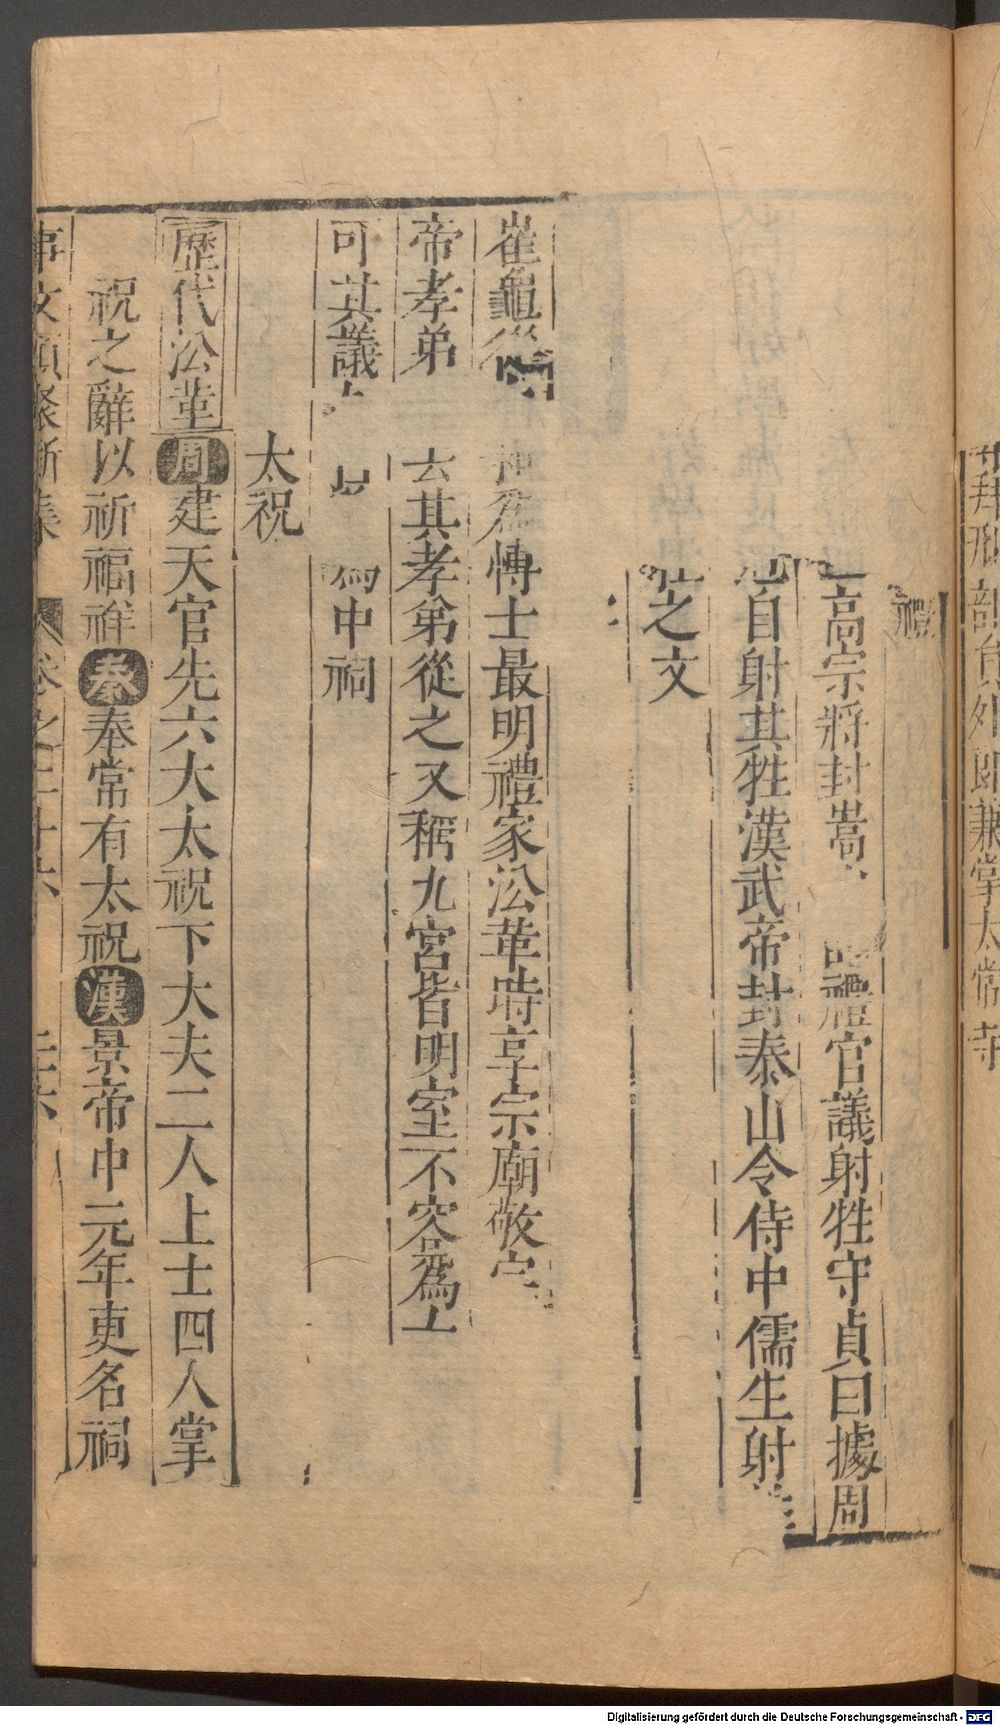 拜祠部員外郎兼掌太常寺
禮
高宗將封嵩 禮官議射牲守貞曰據周
自射其牲漢武帝封泰山令侍中儒生射
之文
崔龜從 爲博士最明禮家沿革時享宗廟敬宗
帝孝弟 去其孝弟從之又稱九宮皆明室不容爲上
可其議 中祠
太祝
歷代沿革周建天官先六大太祝下大夫二人上士四人掌
祝之辭以祈福祥秦奉常有太祝漢景帝中元年更名祠
事文類聚新集 卷之二十六 二六
Digitalisierung gefördert durch die Deutsche Forschungsgemeinschaft - DFG